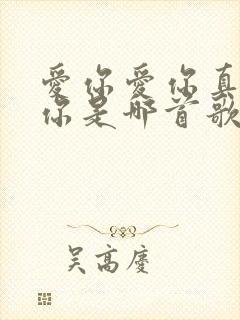 愛你愛你真
你是哪首歌
吴高慶